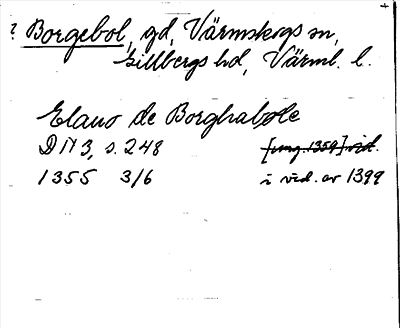 ? Borgebol, gd, Värmskogs sn,
Gillbergs hd, Värml. l.
Elauo de Borghabole
DN 3, s. 248 [omg. 1359] vid.
1355 3/6 i vid. av 1399